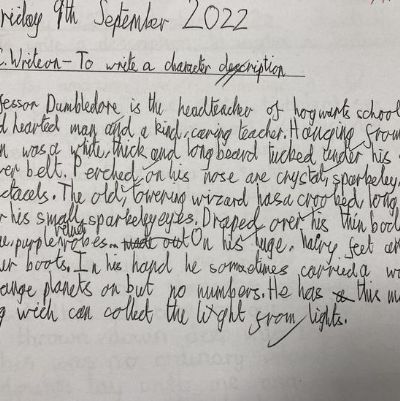 riday 9th September 2022
C.Writeon - To write a character description
fessor Dumbledore is the headteacher of hogwarts school
d hearted man and a kind, caring teacher. Hanging from
n was a white, thick and long beard tucked under his
ver belt. Perched on his nose are crystal, sparkeley,
ctacels. The old, towering wizard has a crooked, long
r his small sparkeley eyes. Draped over his thin bod
e, purple velvet robes. made out On his huge, hairy feet are
er boots. In his hand he somtimes carried a wa
ange planets on but no numbers. He has this m
g wich can collect the light from lights.